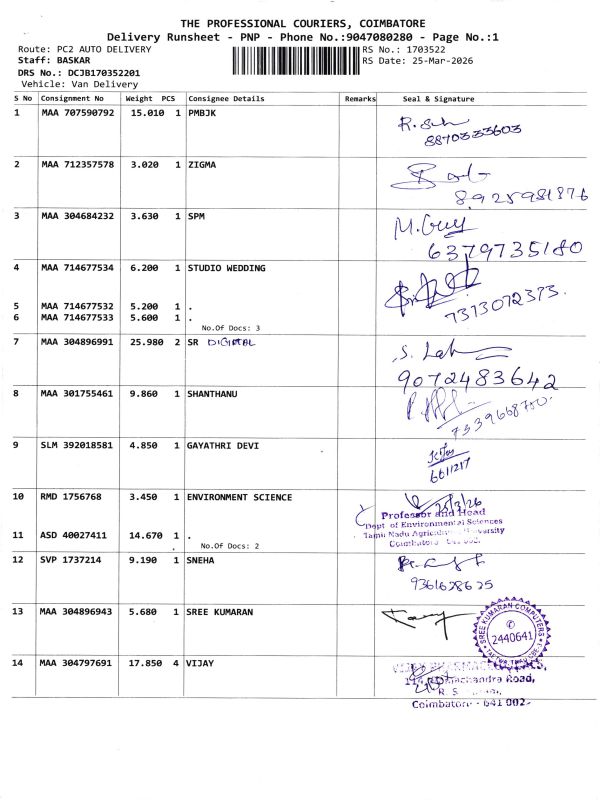 THE PROFESSIONAL COURIERS, COIMBATORE
Delivery Runsheet - PNP - Phone No.:9047080280 - Page No.:1
Route: PC2 AUTO DELIVERY RS No.: 1703522
Staff: BASKAR RS Date: 25-Mar-2026
DRS No.: DCJB170352201
Vehicle: Van Delivery
S No Consignment No Weight PCS Consignee Details Remarks Seal & Signature
1 MAA 707590792 15.010 1 PMBJK
8870333603
2 MAA 712357578 3.020 1 ZIGMA
8925981876
3 MAA 304684232 3.630 1 SPM M.Guy
6379735180
4 MAA 714677534 6.200 1 STUDIO WEDDING
7373072373.
5 MAA 714677532 5.200 1 .
6 MAA 714677533 5.600 1 .
No.Of Docs: 3
7 MAA 304896991 25.980 2 SR DIGITAL
9072483642
8 MAA 301755461 9.860 1 SHANTHANU
7339668750.
9 SLM 392018581 4.850 1 GAYATHRI DEVI
6611217
10 RMD 1756768 3.450 1 ENVIRONMENT SCIENCE 25/3/26
Professor and Head
Dept of Environmental Sciences
11 ASD 40027411 14.670 1 . Tamil Nadu Agricultural University
No.Of Docs: 2 Coimbatore
12 SVP 1737214 9.190 1 SNEHA
9361628625
13 MAA 304896943 5.680 1 SREE KUMARAN
SREE KUMARAN COMPUTERS
2440641
14 MAA 304797691 17.850 4 VIJAY VIJAY
Road,
R. S.
Coimbatore - 641 002.